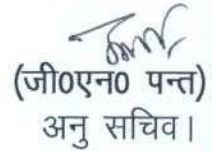 (जी0एन0 पन्त)
अनु सचिव।